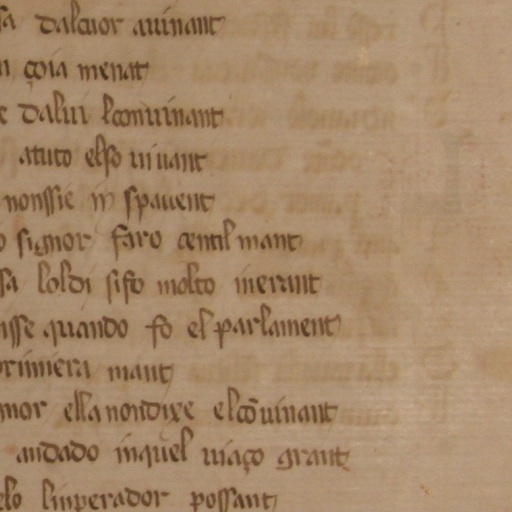 sa dalcuor auinant
n çoia menat
e dalui lconuinant
atuto elso uiuant
nonssie in spauent
o signor faro centilmant
sa loldi sisto molto inerant
isse quando fo el parlament
primiera mant
nor ella nondixe elcōuinant
andado inquel uiaço grant
elo linperador possant